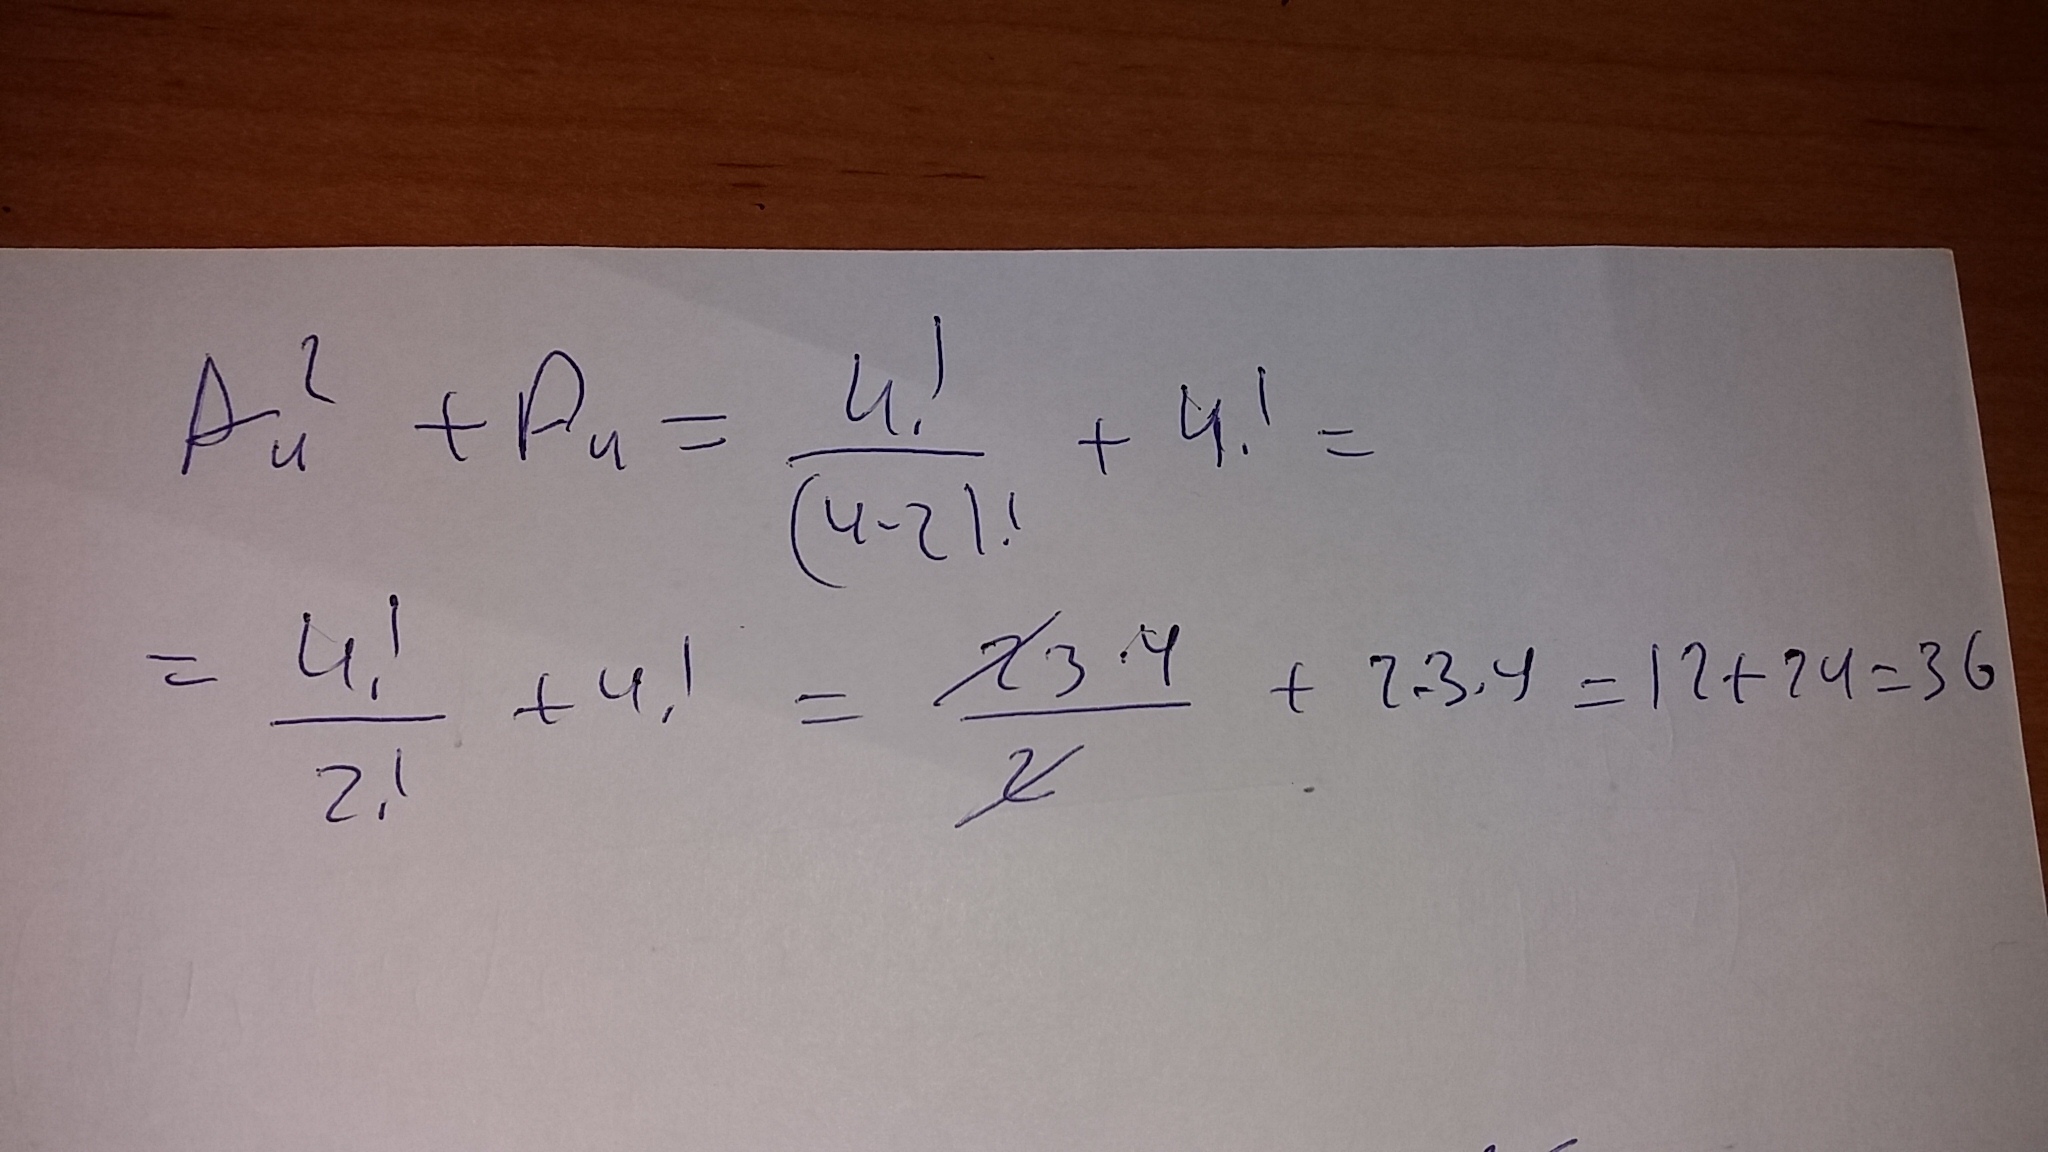 A₄² + P₄ = 4!/(4-2)! + 4! =
= 4!/2! + 4! = 2 3 · 4/2 + 2·3·4 = 12 + 24 = 36